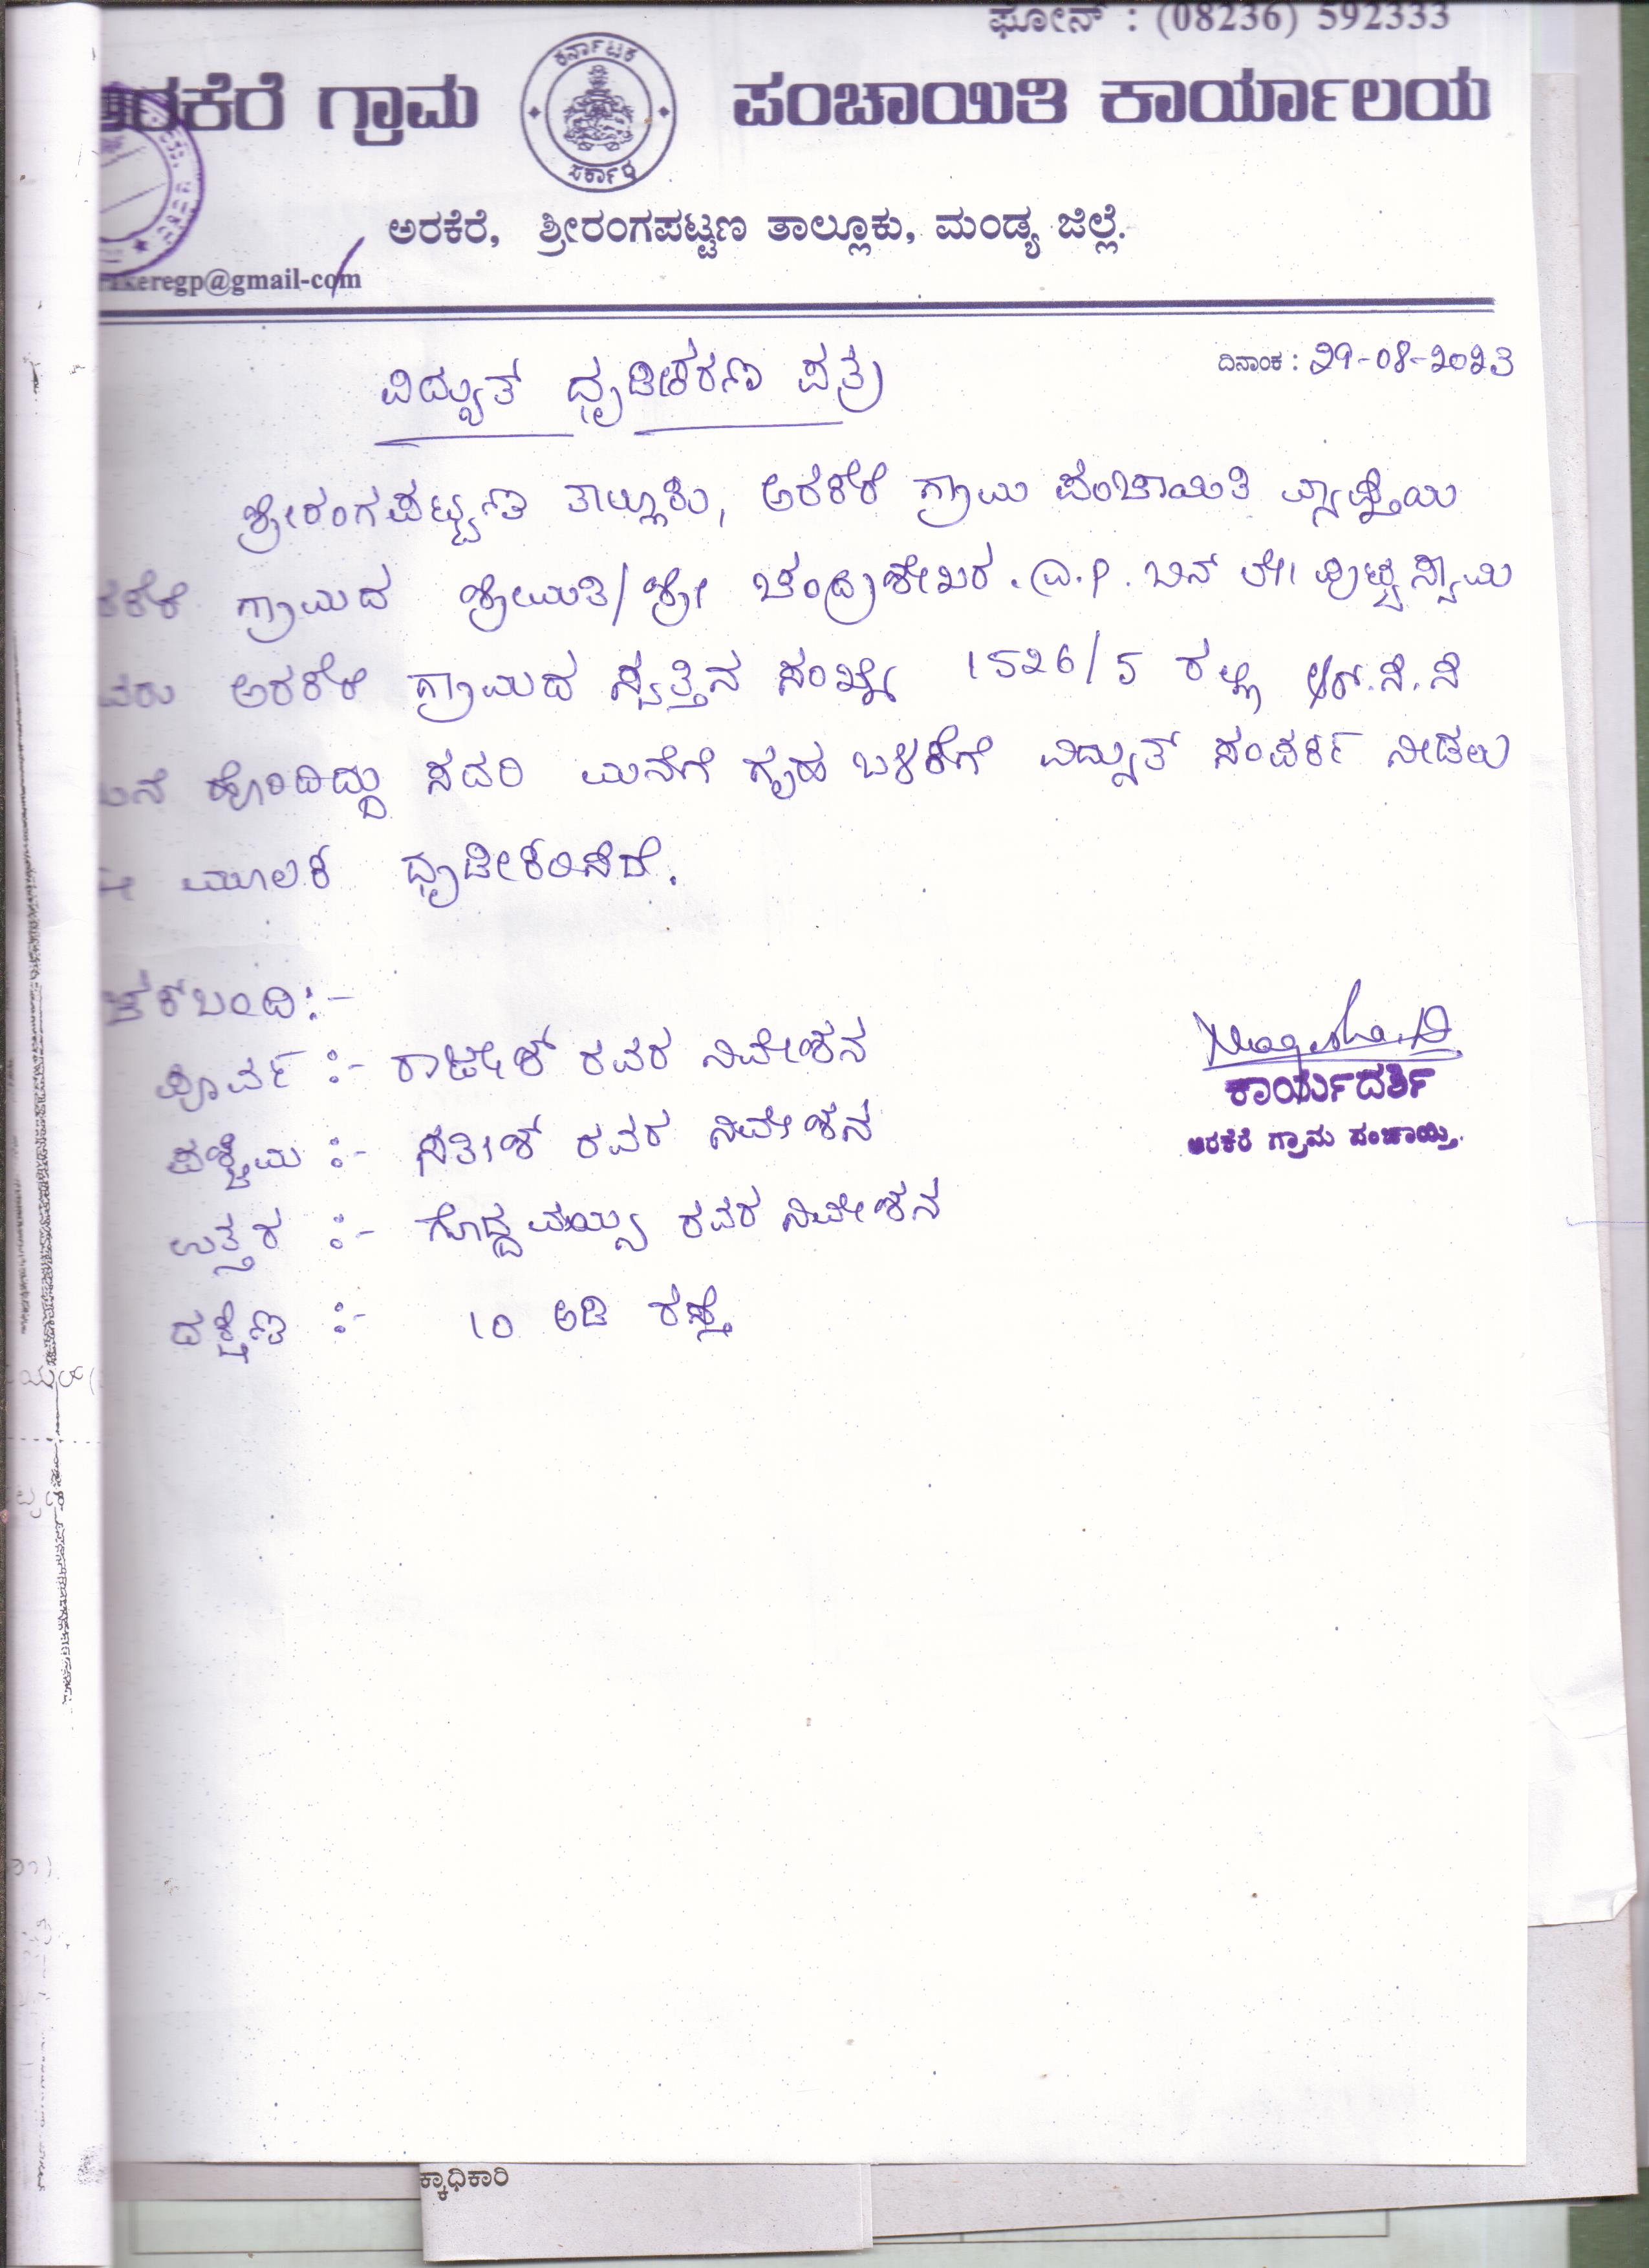 ಫೋನ್ : (08236) 592333
ಅರಕೆರೆ ಗ್ರಾಮ ಪಂಚಾಯಿತಿ ಕಾರ್ಯಾಲಯ
ಕರ್ನಾಟಕ
ಸರ್ಕಾರ
ಅರಕೆರೆ, ಶ್ರೀರಂಗಪಟ್ಟಣ ತಾಲ್ಲೂಕು, ಮಂಡ್ಯ ಜಿಲ್ಲೆ.
keregp@gmail-com
ದಿನಾಂಕ : 29-08-2023
ವಿದ್ಯುತ್ ಧೃಡೀಕರಣ ಪತ್ರ
ಶ್ರೀರಂಗಪಟ್ಟಣ ತಾಲ್ಲೂಕು, ಅರಕೆರೆ ಗ್ರಾಮ ಪಂಚಾಯಿತಿ ವ್ಯಾಪ್ತಿಯ
ರಕೆರೆ ಗ್ರಾಮದ ಶ್ರೀಮತಿ/ಶ್ರೀ ಚಂದ್ರಶೇಖರ .ಎ.ಪಿ. ಬಿನ್ ಲೇ। ಪುಟ್ಟಸ್ವಾಮಿ
ವರು ಅರಕೆರೆ ಗ್ರಾಮದ ಸ್ವತ್ತಿನ ಸಂಖ್ಯೆ 1526/5 ರಲ್ಲಿ ಆರ್.ಸಿ.ಸಿ
ಮನೆ ಹೊಂದಿದ್ದು ಸದರಿ ಮನೆಗೆ ಗೃಹ ಬಳಕೆಗೆ ವಿದ್ಯುತ್ ಸಂಪರ್ಕ ನೀಡಲು
ಈ ಮೂಲಕ ಧೃಡೀಕರಿಸಿದೆ.
ಚಕಬಂದಿ:-
ಪೂರ್ವ :- ರಾಜೇಶ್ ರವರ ನಿವೇಶನ
ಪಶ್ಚಿಮ :- ಸತೀಶ್ ರವರ ನಿವೇಶನ
ಉತ್ತರ :- ರವರ ನಿವೇಶನ
ದಕ್ಷಿಣ :- 10 ಅಡಿ ರಸ್ತೆ
Nagesha.D
ಕಾರ್ಯದರ್ಶಿ
ಅರಕೆರೆ ಗ್ರಾಮ ಪಂಚಾಯ್ತಿ.
ಕ್ಕಾಧಿಕಾರಿ